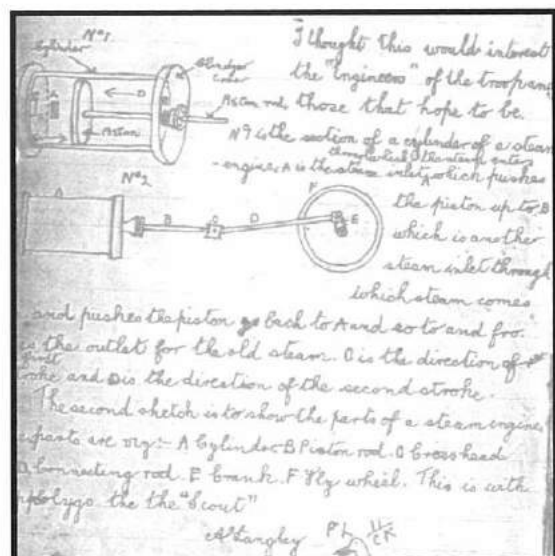 No 1
Cylinder
Cylinder Cover
Piston rod
Piston
A
D
B
No 2
A
B
C
D
E
F
I thought this would interest
the "Engineers" of the troop and
those that hope to be.
No 1 is the section of a cylinder of a steam
-engine, A is the steam inlet, through which the steam enters which pushes
the piston up to B
which is another
steam inlet through
which steam comes
and pushes the piston back to A and so to and fro.
is the outlet for the old steam. C is the direction of
first
and D is the direction of the second stroke.
The second sketch is to show the parts of a steam engine
parts are viz:- A Cylinder B Piston rod. C Cross head
Connecting rod. E Crank. F Fly wheel. This is with
the the "Scout"
A Langley